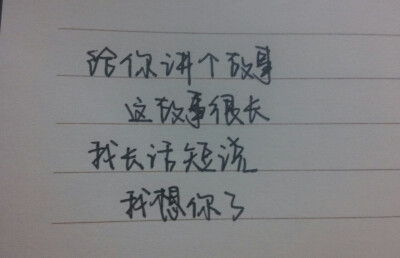 给你讲个故事
这故事很长
我长话短说
我想你了